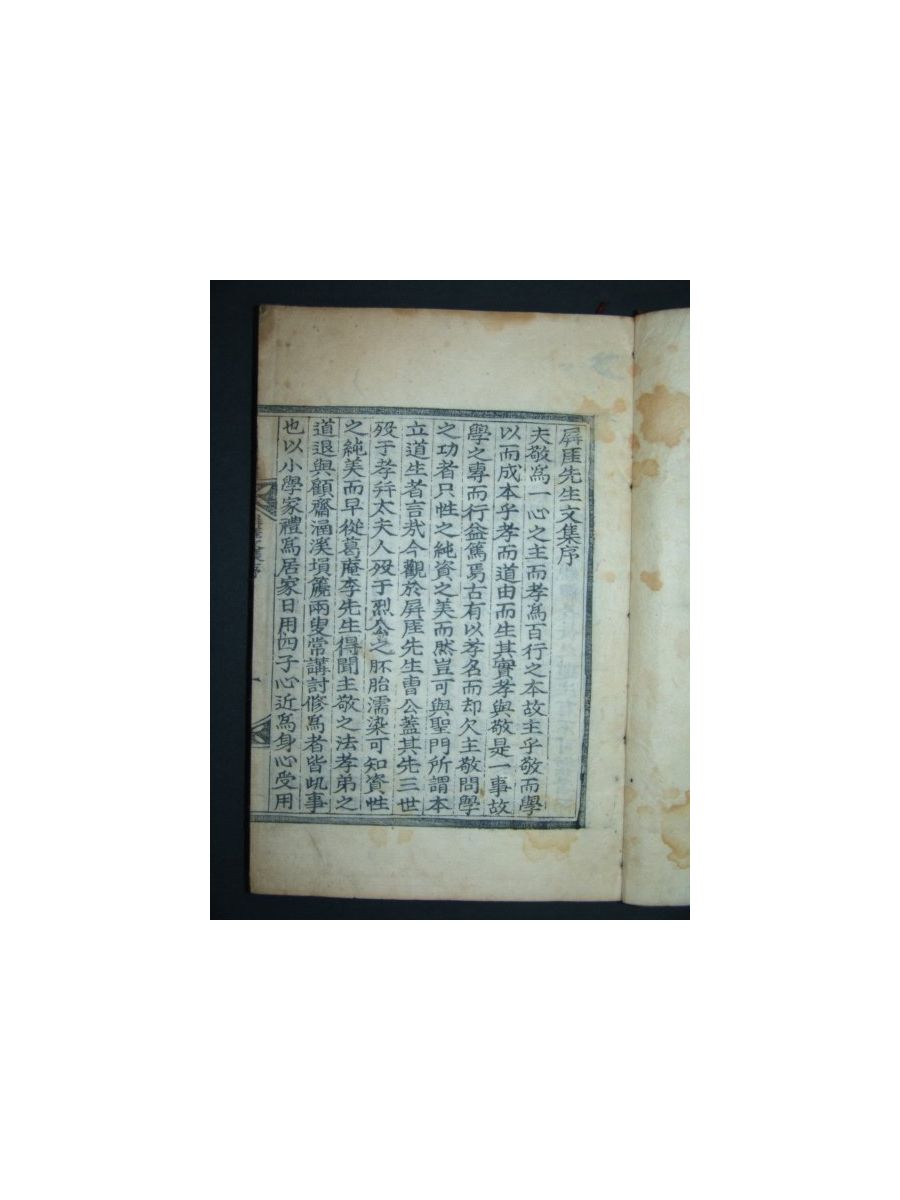 屛厓先生文集序
夫敬爲一心之主而孝爲百行之本故主乎敬而學
以而成本乎孝而道由而生其實孝與敬是一事故
學之專而行益篤焉古有以孝名而却欠主敬問學
之功者只性之純資之美而然豈可與聖門所謂本
立道生者言㢤今觀於屛厓先生曺公盖其先三世
歿于孝幷太夫人歿于烈公之胚胎濡染可知資性
之純美而早從葛庵李先生得聞主敬之法孝弟之
道退與顧齋涵溪塤篪兩叟常講討修爲者皆此事
也以小學家禮爲居家日用四子心近爲身心受用